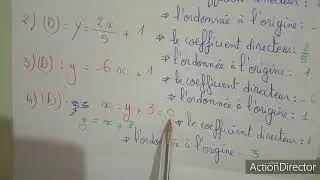 l'ordonnée à l'origine:
2) (D): y = 2x/5 + 1 → le coefficient directeur: 2/5
→ l'ordonnée à l'origine: 1
3) (D): y = -6x + 1 → le coefficient directeur: -6
→ l'ordonnée à l'origine: 1
4) (D): x - y + 3 = 0
y = x + 3 → le coefficient directeur: 1
→ l'ordonnée à l'origine: 3
ActionDirector